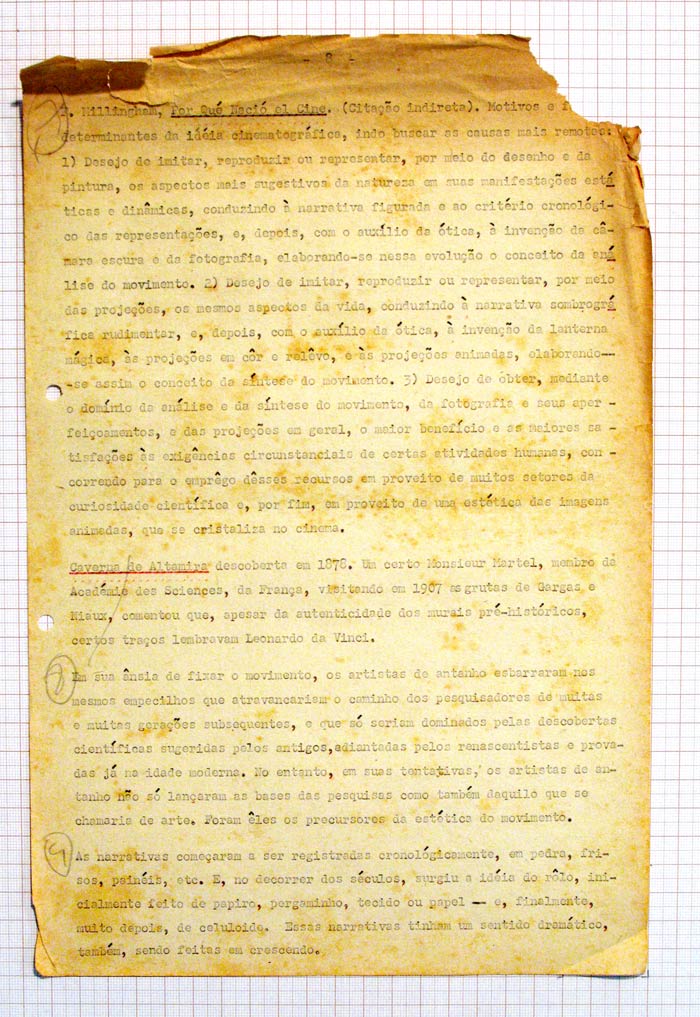 - 8 -
F. Millingham, Por Qué Nació el Cine. (Citação indireta). Motivos e
determinantes da idéia cinematográfica, indo buscar as causas mais remotas:
1) Desejo de imitar, reproduzir ou representar, por meio do desenho e da
pintura, os aspectos mais sugestivos da natureza em suas manifestações está
ticas e dinâmicas, conduzindo à narrativa figurada e ao critério cronológi-
co das representações, e, depois, com o auxílio da ótica, à invenção da câ-
mara escura e da fotografia, elaborando-se nessa evolução o conceito da aná
lise do movimento. 2) Desejo de imitar, reproduzir ou representar, por meio
das projeções, os mesmos aspectos da vida, conduzindo à narrativa sombrográ
fica rudimentar, e, depois, com o auxílio da ótica, à invenção da lanterna
mágica, às projeções em côr e relêvo, e às projeções animadas, elaborando--
-se assim o conceito da síntese do movimento. 3) Desejo de obter, mediante
o domínio da análise e da síntese do movimento, da fotografia e seus aper-
feiçoamentos, e das projeções em geral, o maior benefício e as maiores sa-
tisfações às exigências circunstanciais de certas atividades humanas, con-
correndo para o emprêgo dêsses recursos em proveito de muitos setores da
curiosidade científica e, por fim, em proveito de uma estética das imagens
animadas, que se cristaliza no cinema.
Caverna de Altamira descoberta em 1878. Um certo Monsieur Martel, membro da
Académie des Sciences, da França, visitando em 1907 as grutas de Gargas e
Niaux, comentou que, apesar da autenticidade dos murais pré-históricos,
certos traços lembravam Leonardo da Vinci.
Em sua ânsia de fixar o movimento, os artistas de antanho esbarraram nos
mesmos empecilhos que atravancariam o caminho dos pesquisadores de muitas
e muitas gerações subsequentes, e que só seriam dominados pelas descobertas
científicas sugeridas pelos antigos, adiantadas pelos renascentistas e prova-
das já na idade moderna. No entanto, em suas tentativas, os artistas de an-
tanho não só lançaram as bases das pesquisas como também daquilo que se
chamaria de arte. Foram êles os precursores da estética do movimento.
As narrativas começaram a ser registradas cronológicamente, em pedra, fri-
sos, painéis, etc. E, no decorrer dos séculos, surgiu a idéia do rôlo, ini-
cialmente feito de papiro, pergaminho, tecido ou papel — e, finalmente,
muito depois, de celuloide. Essas narrativas tinham um sentido dramático,
também, sendo feitas em crescendo.